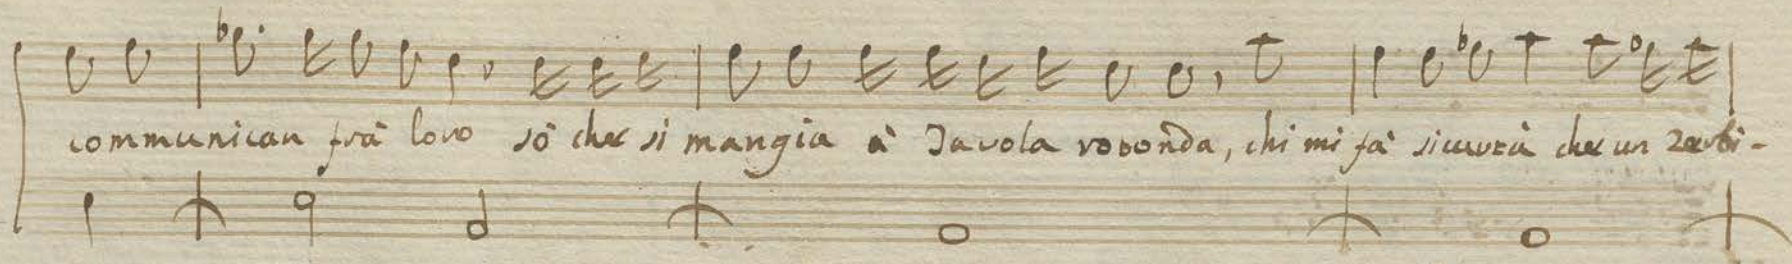 communican frà loro sò che si mangia à Tavola rotonda, chi mi fà sicurtà che un Zerbi-